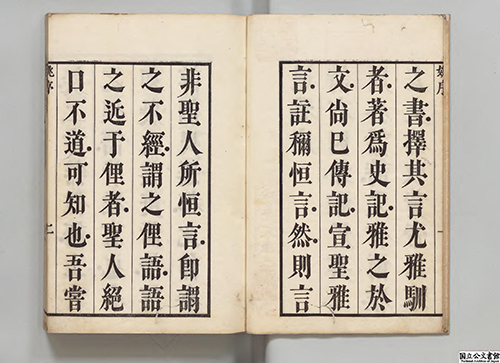 之書擇其言尤雅馴
者著爲史記雅之於
文尙已傳記宣聖雅
言註穪恒言然則言
非聖人所恒言卽謂
之不經謂之俚語語
之近于俚者聖人絕
口不道可知也吾嘗
国立公文書館
National Archives of Japan